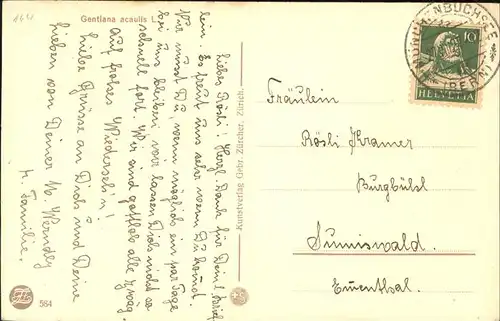 Gentiana acaulis L.
Liebes Rösli! Herzl. Dank für Deinl. Brief-
lein. Es freut uns sehr wenn Du kommst.
Nur musst Du, wenn möglich ein par Tage
bei uns bleiben wir lassen Dich nicht so
schnell fort. Wir sind gottlob alle zwäg.
Auf frohes Wiederseh'n!
Liebe Grüsse an Dich und Deine
Lieben von Deiner M. Werndly
u. Familie.
584
Kunstverlag Gebr. Zürcher, Zürich.
MÜNCHENBUCHSEE
(BERN)
10
HELVETIA
Fräulein
Rösli Kramer
Burgbühl
Sumiswald.
Emmenthal.